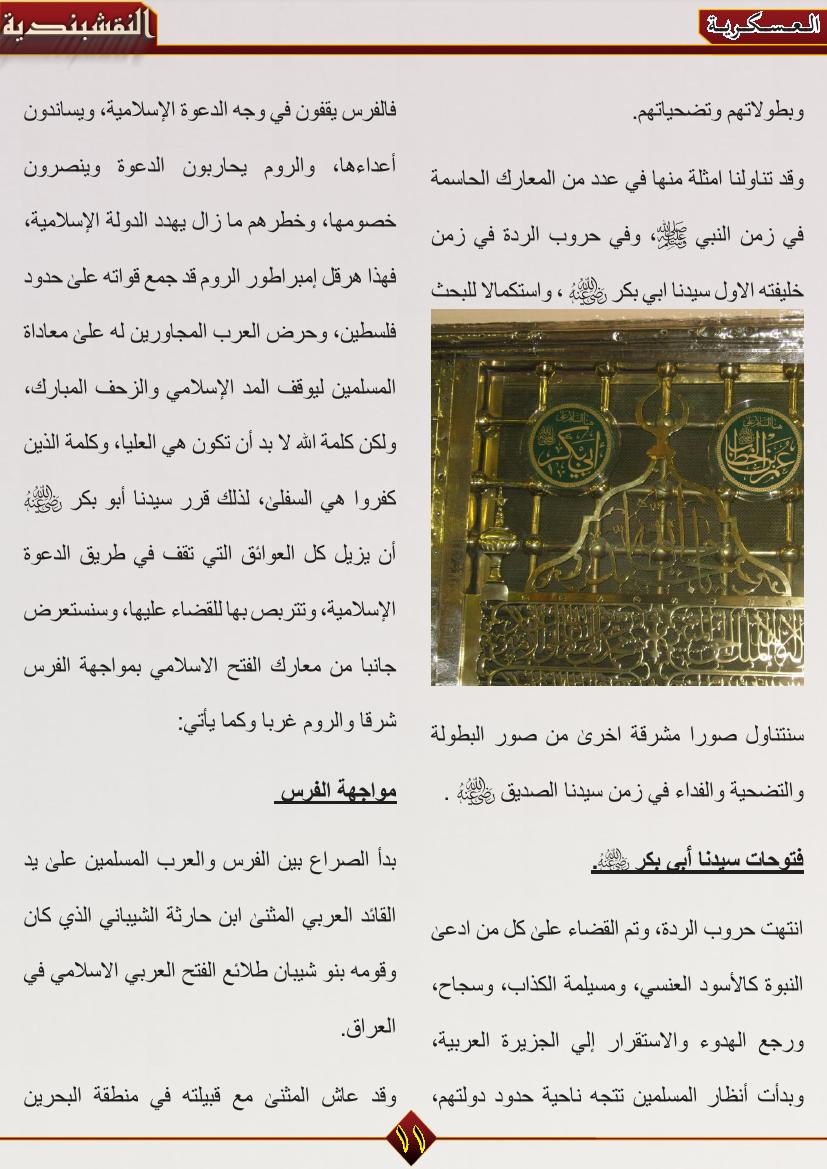 العسكرية
النقشبندية
وبطولاتهم وتضحياتهم.
وقد تناولنا امثلة منها في عدد من المعارك الحاسمة
في زمن النبي ﷺ، وفي حروب الردة في زمن
خليفته الاول سيدنا ابي بكر رضي الله عنه ، واستكمالا للبحث
أبي بكر
عمر بن الخطاب
سنتناول صورا مشرقة اخرىٰ من صور البطولة
والتضحية والفداء في زمن سيدنا الصديق رضي الله عنه .
فتوحات سيدنا أبي بكر رضي الله عنه.
انتهت حروب الردة، وتم القضاء علىٰ كل من ادعىٰ
النبوة كالأسود العنسي، ومسيلمة الكذاب، وسجاح،
ورجع الهدوء والاستقرار إلي الجزيرة العربية،
وبدأت أنظار المسلمين تتجه ناحية حدود دولتهم،
فالفرس يقفون في وجه الدعوة الإسلامية، ويساندون
أعداءها، والروم يحاربون الدعوة وينصرون
خصومها، وخطرهم ما زال يهدد الدولة الإسلامية،
فهذا هرقل إمبراطور الروم قد جمع قواته علىٰ حدود
فلسطين، وحرض العرب المجاورين له علىٰ معاداة
المسلمين ليوقف المد الإسلامي والزحف المبارك،
ولكن كلمة الله لا بد أن تكون هي العليا، وكلمة الذين
كفروا هي السفلىٰ، لذلك قرر سيدنا أبو بكر رضي الله عنه
أن يزيل كل العوائق التي تقف في طريق الدعوة
الإسلامية، وتتربص بها للقضاء عليها، وسنستعرض
جانبا من معارك الفتح الاسلامي بمواجهة الفرس
شرقا والروم غربا وكما يأتي:
مواجهة الفرس
بدأ الصراع بين الفرس والعرب المسلمين علىٰ يد
القائد العربي المثنىٰ ابن حارثة الشيباني الذي كان
وقومه بنو شيبان طلائع الفتح العربي الاسلامي في
العراق.
وقد عاش المثنىٰ مع قبيلته في منطقة البحرين
١١